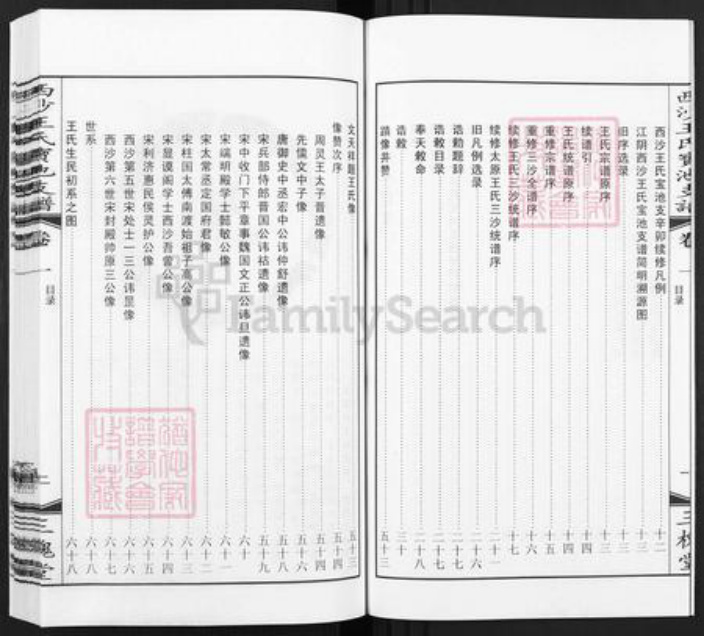 西沙王氏宝池支谱 卷一 目录 三槐堂
西沙王氏宝池支辛卯续修凡例 十二
江阴西沙王氏宝池支谱简明溯源图
旧序选录 十三
王氏宗谱原序 十三
续谱引 十四
王氏统谱原序 十四
重修宗谱序 十五
重修三沙全谱序 十六
续修王氏三沙统谱序 十七
续修太原王氏三沙统谱序 二十一
旧凡例选录 二十六
诰勅题辞 二十七
诰敕目录 二十七
奉天敕命 二十八
诰敕 三十
蹟像并赞 五十三
文天祥题王氏像 五十三
像赞次序 五十四
周灵王太子晋遗像 五十四
先儒文中子像 五十六
唐御史中丞宏中公讳仲舒遗像 五十八
宋兵部侍郎晋国公讳祜遗像 五十九
宋中收门下平章事魏国文正公讳旦遗像
宋端明殿学士懿敏公像 六十一
宋太常丞定国府君像 六十二
宋柱国太傅南渡始祖子高公像 六十三
宋显谟阁学士西沙吾訾公像 六十四
宋利济惠民侯灵护公像 六十五
西沙第五世宋处士一三公讳昱像 六十六
西沙第六世宋封殿帅原三公像
世系 六十八
王氏生民初系之图 六十八
西沙王氏宝池支谱 卷一 目录 三槐堂
FamilySearch